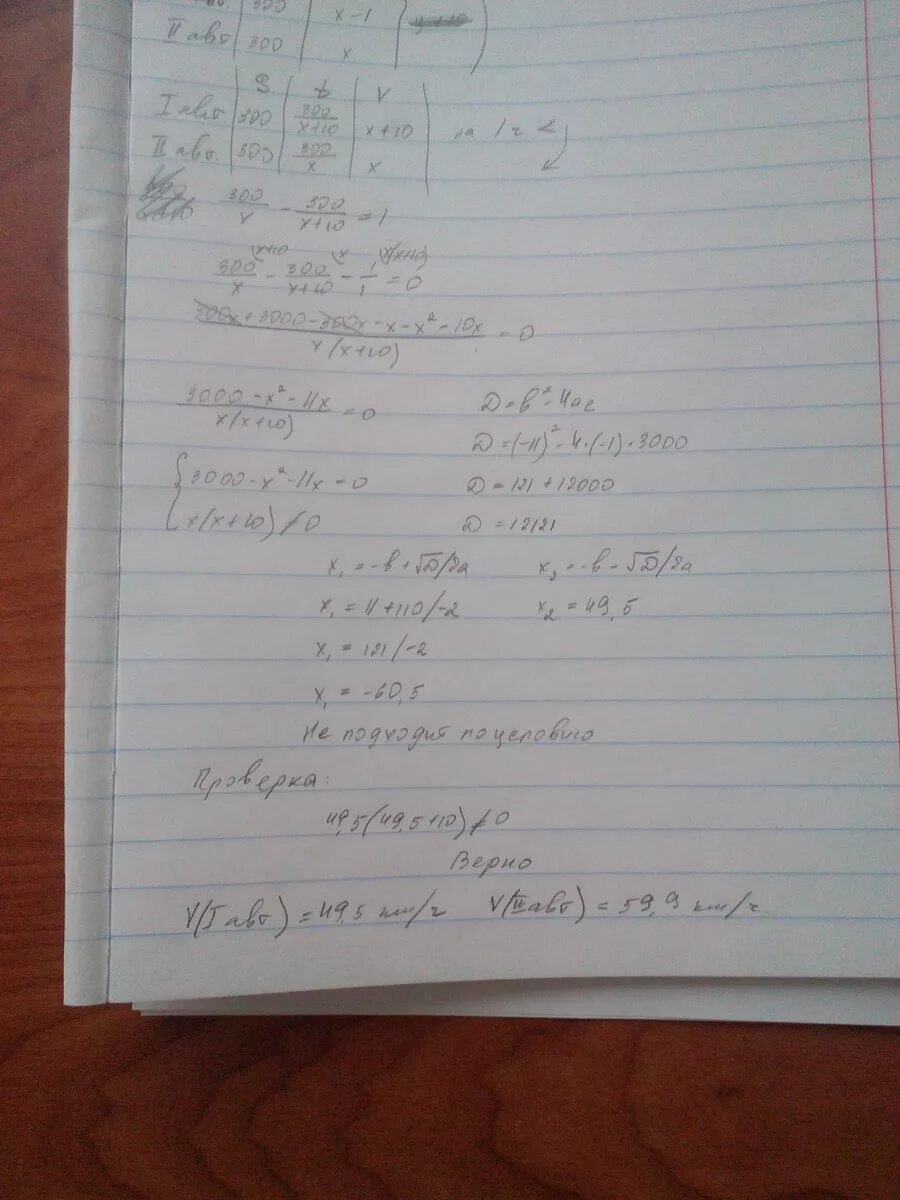 300 | x-1
II авт | 300 | x
S | t | V
I авт | 300 | 300/(x+10) | x+10 | на 1 ч <
II авт. | 300 | 300/x | x
300/x - 300/(x+10) = 1
300/x - 300/(x+10) - 1/1 = 0
(300x + 3000 - 300x - x - x² - 10x)/(x(x+10)) = 0
(3000 - x² - 11x)/(x(x+10)) = 0
D = b² - 4ac
D = (-11)² - 4·(-1)·3000
{3000 - x² - 11x = 0
D = 121 + 12000
x(x+10) ≠ 0
D = 12121
x₁ = -b + √D/2a
x₂ = -b - √D/2a
x₁ = 11 + 110/-2
x₂ = 49,5
x₁ = 121/-2
x₁ = -60,5
Не подходит по условию
Проверка:
49,5(49,5+10) ≠ 0
Верно
V(I авт) = 49,5 км/ч V(II авт) = 59,9 км/ч